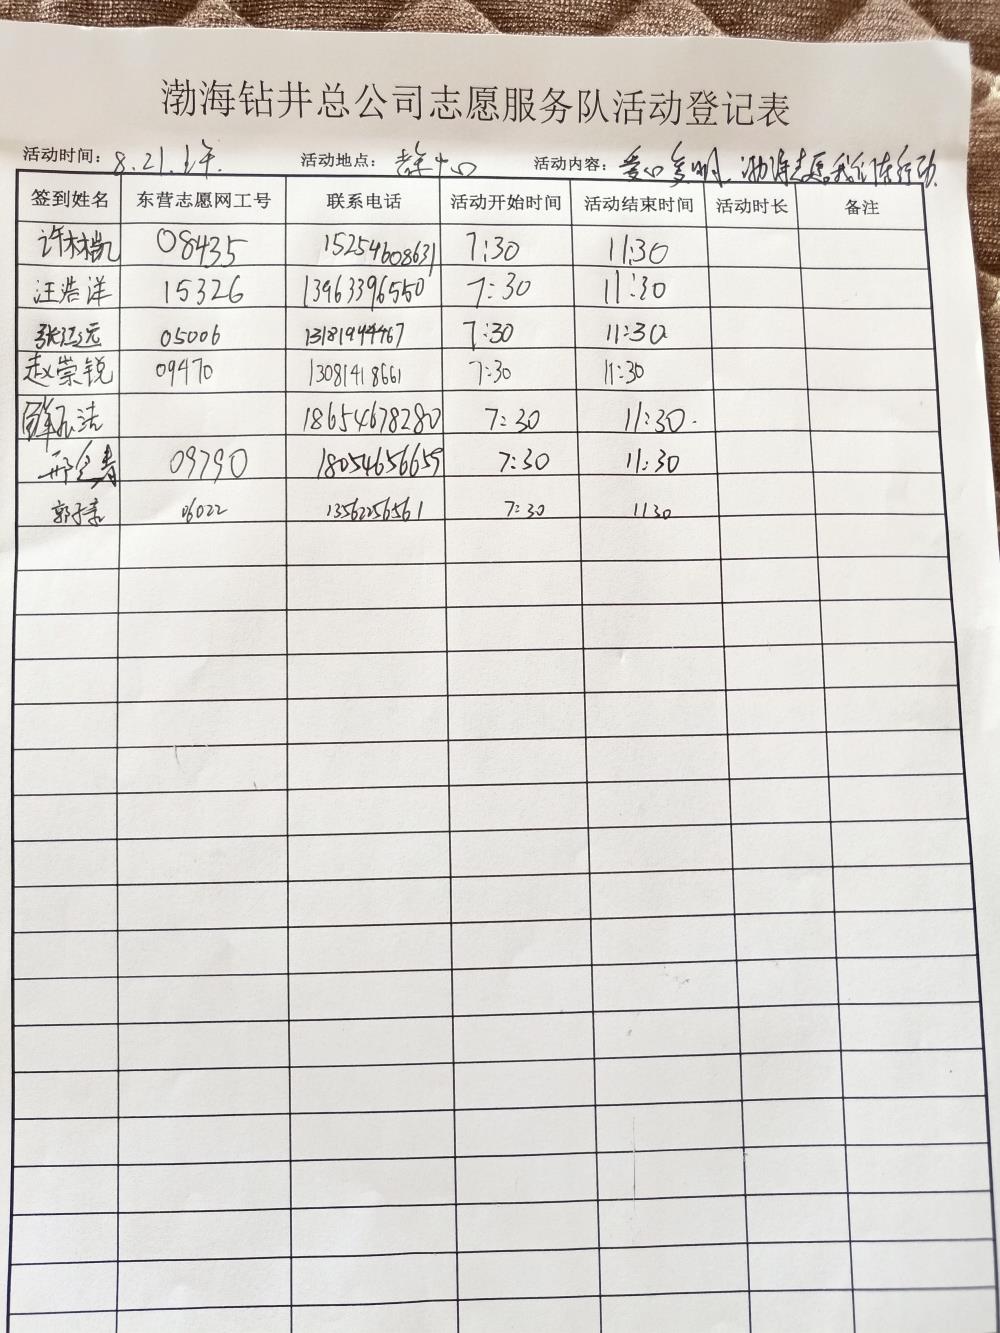 渤海钻井总公司志愿服务队活动登记表
活动时间：8.21.上午. 活动地点：中心 活动内容：爱心 渤海志愿我们在行动.
签到姓名 东营志愿网工号 联系电话 活动开始时间 活动结束时间 活动时长 备注
许林凯 08435 15254608631 7:30 11:30
汪浩洋 15326 13963396550 7:30 11:30
张江远 05006 13181944467 7:30 11:30
赵崇锐 09470 13081418661 7:30 11:30
18654678280 7:30 11:30.
邢 09790 18054656659 7:30 11:30
郭子豪 06022 13562256561 7:30 1130